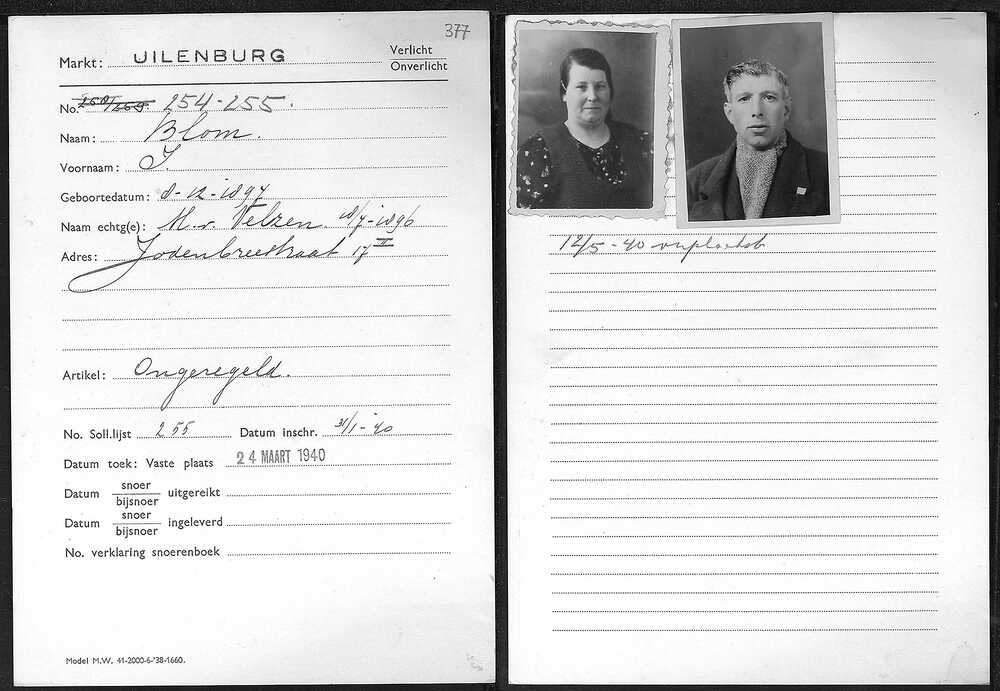 377
Markt: UILENBURG
Verlicht
Onverlicht
No. 254-255.
Naam: Blom.
Voornaam: J.
Geboortedatum: 8-12-1897
Naam echtg(e): M. v. Velzen. 18/7-1896
Adres: Jodenbreestraat 17 II
Artikel: Ongeregeld.
No. Soll.lijst 255 Datum inschr. 31/1-40
Datum toek: Vaste plaats 24 MAART 1940
Datum snoer/bijsnoer uitgereikt
Datum snoer/bijsnoer ingeleverd
No. verklaring snoerenboek
Model M.W. 41-2000-6-'38-1660.
12/5-40